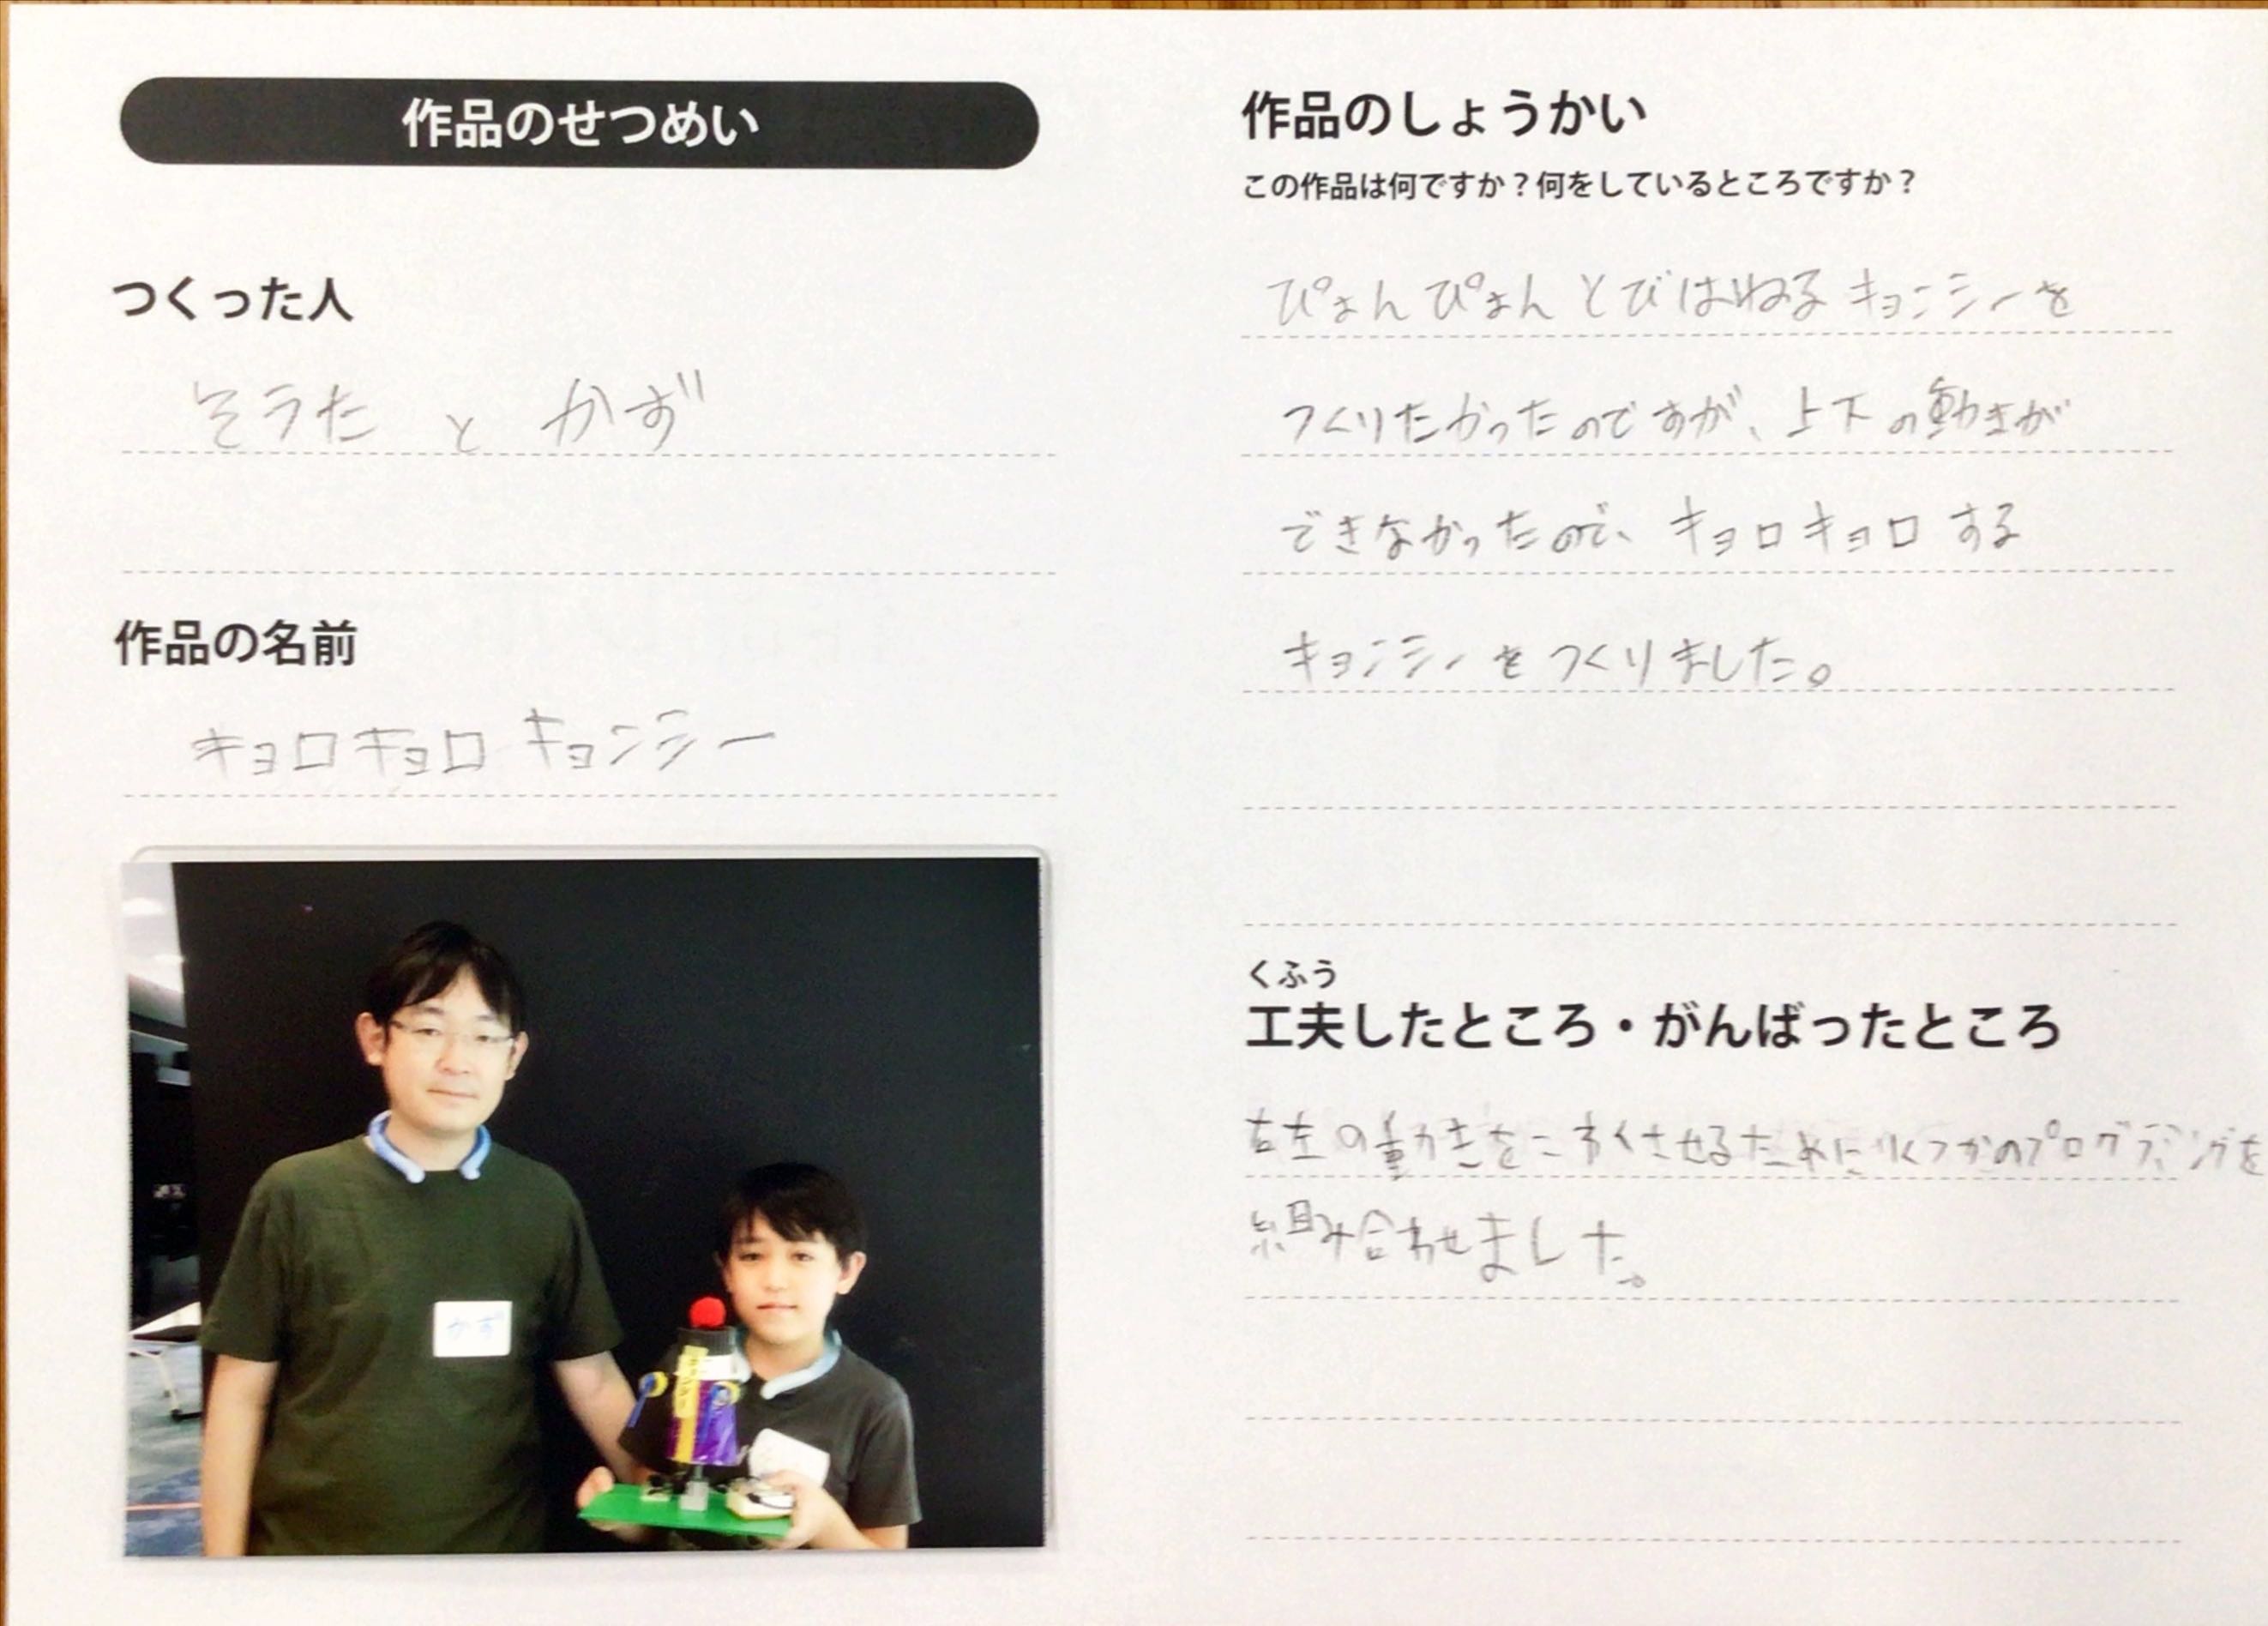 作品のせつめい
つくった人
そうた と かず
作品の名前
キョロキョロ キョンシー
かず
作品のしょうかい
この作品は何ですか？何をしているところですか？
ぴょんぴょんとびはねるキョンシーを
つくりたかったのですが、上下の動きが
できなかったので、キョロキョロする
キョンシーをつくりました。
くふう
工夫したところ・がんばったところ
右左の動きをこまかくさせるためにいくつかのプログラミングを
組み合わせました。